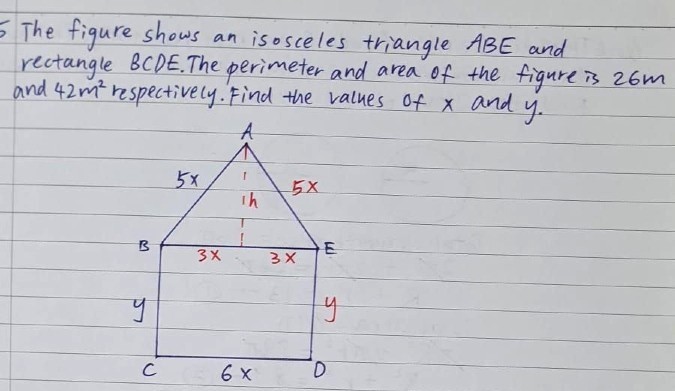 5 The figure shows an isosceles triangle ABE and
rectangle BCDE. The perimeter and area of the figure is 26m
and 42m² respectively. Find the values of x and y.
A
5x
5x
h
B
3x
3x
E
y
y
C
6x
D